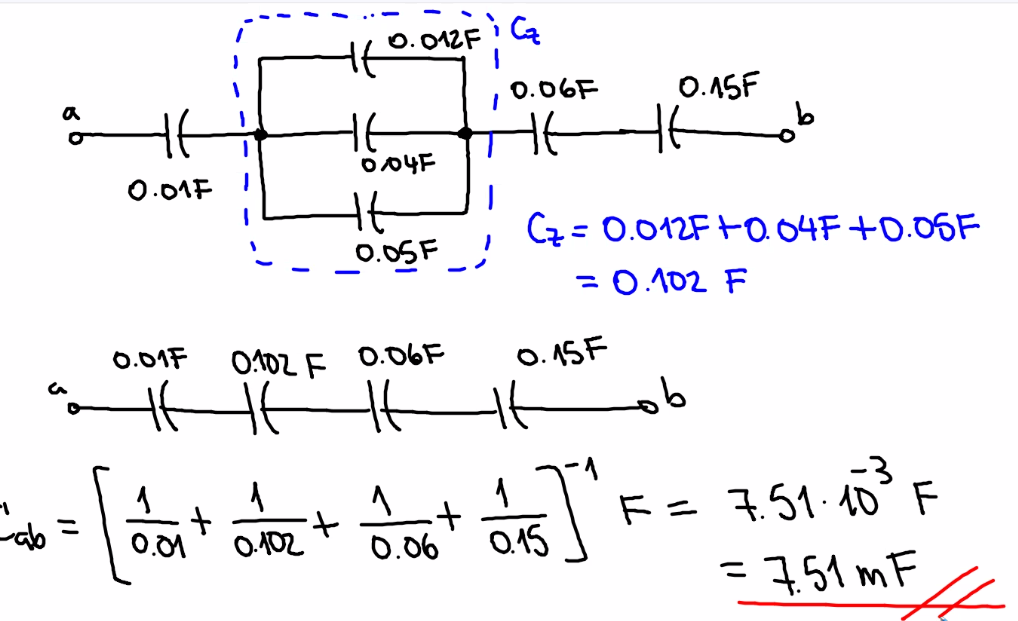 0.012F C₂
a 0.01F 0.04F 0.06F 0.15F b
0.05F
C₂ = 0.012F + 0.04F + 0.05F
= 0.102 F
a 0.01F 0.102 F 0.06F 0.15F b
Cab = [1/0.01 + 1/0.102 + 1/0.06 + 1/0.15]⁻¹ F = 7.51·10⁻³ F
= 7.51 mF